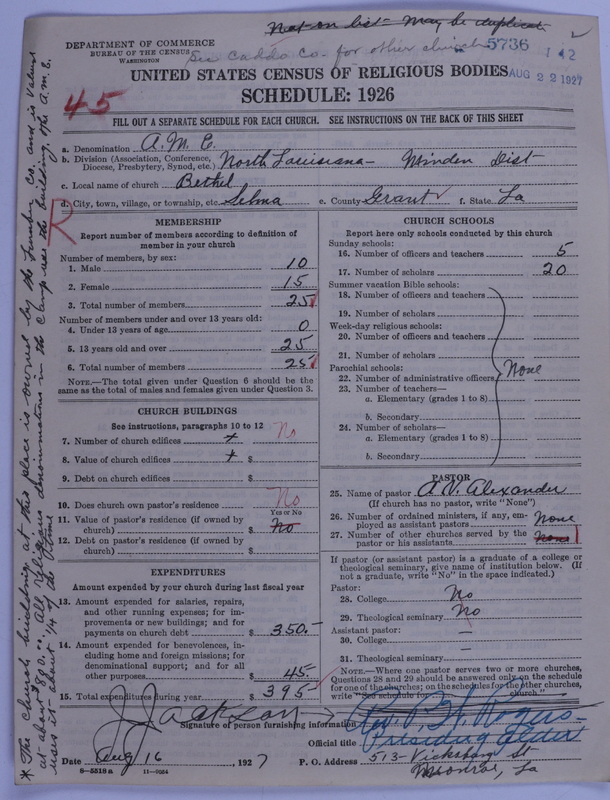 Not on list - May be duplicate
DEPARTMENT OF COMMERCE
BUREAU OF THE CENSUS
WASHINGTON
See Caddo Co. for other church
5736
142
AUG 22 1927
UNITED STATES CENSUS OF RELIGIOUS BODIES
SCHEDULE: 1926
45
FILL OUT A SEPARATE SCHEDULE FOR EACH CHURCH. SEE INSTRUCTIONS ON THE BACK OF THIS SHEET
a. Denomination A. M. E.
b. Division (Association, Conference, Diocese, Presbytery, Synod, etc.) North Louisiana - Minden Dist -
c. Local name of church Bethel
d. City, town, village, or township, etc. Selma e. County Grant f. State La
R
MEMBERSHIP
Report number of members according to definition of
member in your church
Number of members, by sex:
1. Male 10
2. Female 15
3. Total number of members 25
Number of members under and over 13 years old:
4. Under 13 years of age 0
5. 13 years old and over 25
6. Total number of members 25
NOTE.—The total given under Question 6 should be
same as the total of males and females given under Question 3.
CHURCH BUILDINGS
See instructions, paragraphs 10 to 12
7. Number of church edifices * No
8. Value of church edifices * $
9. Debt on church edifices $
10. Does church own pastor's residence No
Yes or No
11. Value of pastor's residence (if owned by
church) $ No
12. Debt on pastor's residence (if owned by
church) $
EXPENDITURES
Amount expended by your church during last fiscal year
13. Amount expended for salaries, repairs,
and other running expenses; for im-
provements or new buildings; and for
payments on church debt $ 350.-
14. Amount expended for benevolences, in-
cluding home and foreign missions; for
denominational support; and for all
other purposes $ 45.-
15. Total expenditures during year $ 395
CHURCH SCHOOLS
Report here only schools conducted by this church
Sunday schools:
16. Number of officers and teachers 5
17. Number of scholars 20
Summer vacation Bible schools:
18. Number of officers and teachers
19. Number of scholars
Week-day religious schools:
20. Number of officers and teachers
21. Number of scholars
Parochial schools: None
22. Number of administrative officers
23. Number of teachers—
a. Elementary (grades 1 to 8)
b. Secondary
24. Number of scholars—
a. Elementary (grades 1 to 8)
b. Secondary
PASTOR
25. Name of pastor A. V. Alexander
(If church has no pastor, write "None")
26. Number of ordained ministers, if any, em-
ployed as assistant pastors None
27. Number of other churches served by the
pastor or his assistants None 1
If pastor (or assistant pastor) is a graduate of a college or
theological seminary, give name of institution below. (If
not a graduate, write "No" in the space indicated.)
Pastor:
28. College No
29. Theological seminary No
Assistant pastor:
30. College —
31. Theological seminary —
NOTE.—Where one pastor serves two or more churches,
Questions 28 and 29 should be answered only on the schedule
for one of the churches; on the schedules for the other churches,
write "See schedule for church."
J. Jackson
Signature of person furnishing information Rev. P. W. Rogers -
Official title Presiding Elder
Date Aug 16, 1927 P. O. Address 513 - Vicksburg St
8-5518a 11-9064 Monroe, La
* The church building at this place is owned by the Lumber Co. and is valued
at about $800.00 All religious denominations in the Camp use the building. The A.M.E.
uses it about 1/4 of the time